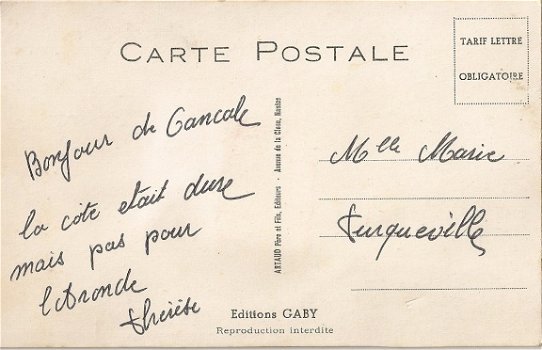 CARTE POSTALE
TARIF LETTRE
OBLIGATOIRE
Bonjour de Cancale
la côte etait dure
mais pas pour
l'Aronde
thérèse
ARTAUD Père et Fils, Editeurs - Avenue de la Close, Nantes
Mlle Marie
Turqueville
Editions GABY
Reproduction interdite